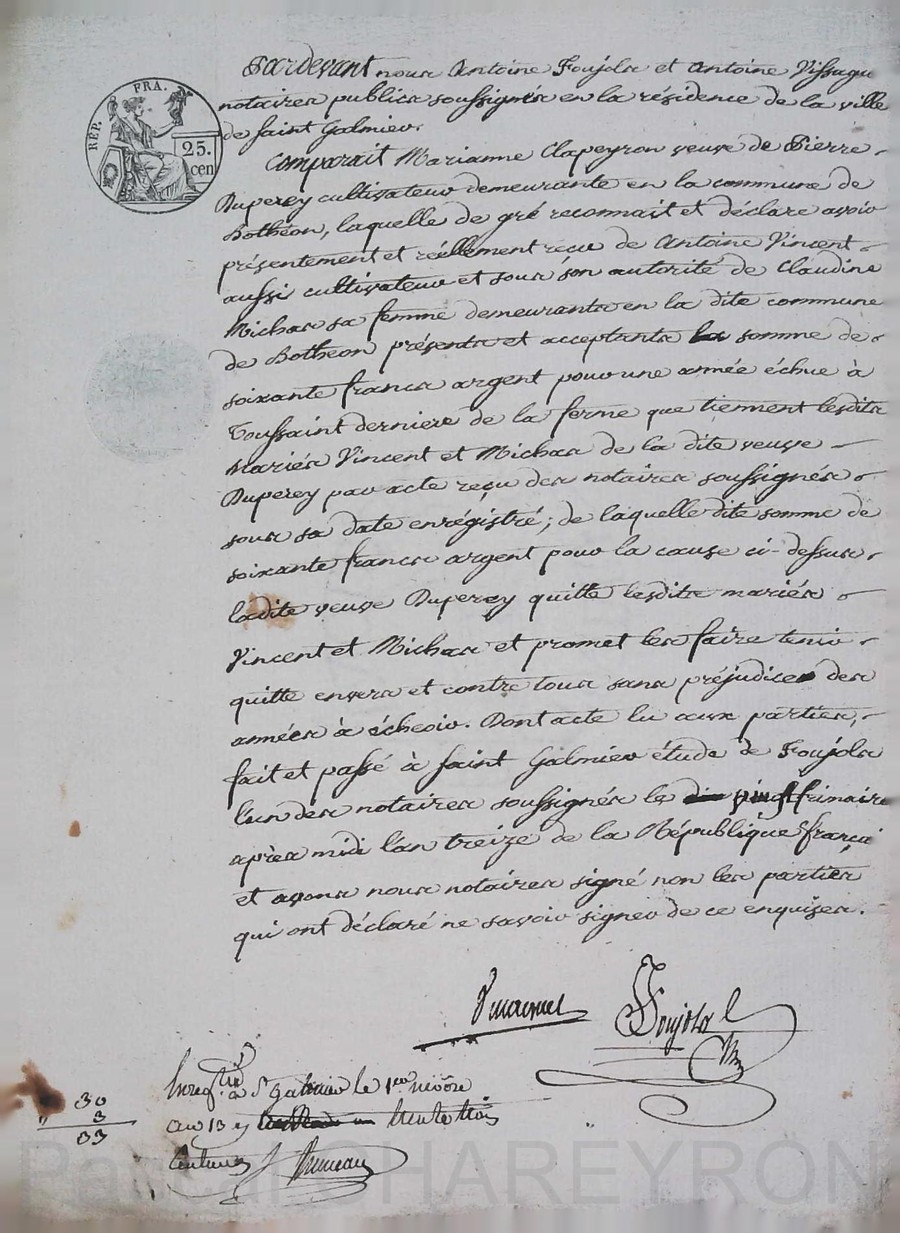 RÉP. FRA.
25.
cen
Pardevant nous Antoine Foujols et Antoine
notaires publics soussignés en la résidence de la ville
de saint Galmier.
Comparait Marianne Clapeyron veuve de Pierre
Duperey cultivateur demeurante en la commune de
Bothéon, laquelle de gré reconnait et déclare avoir
présentement et réellement reçu de Antoine Vincent
aussi cultivateur et sous son autorité de Claudine
Michas sa femme demeurants en la dite commune
de Bothéon présents et acceptants la somme de
soixante francs argent pour une année échue à
Toussaint derniere de la ferme que tiennent lesdits
mariés Vincent et Michas de la dite veuve
Duperey par acte reçu des notaires soussignés
sous sa date enrégistré; de laquelle dite somme de
soixante francs argent pour la cause ci-dessus
ladite veuve Duperey quitte lesdits mariés
Vincent et Michas et promet les faire tenir
quitte envers et contre tous sans préjudice des
années à échéoir. Dont acte lu aux parties,
fait et passé à saint Galmier étude de Foujols
l'un des notaires soussignés le frimaire
après midi l'an treize de la République françai
et avons nous notaires signé non les parties
qui ont déclaré ne savoir signer de ce enquises.
Foujols
Enregtré à St Galmier le 1er nivôse
an 13 trente trois
centimes
30
3
33
Pascal CHAREYRON